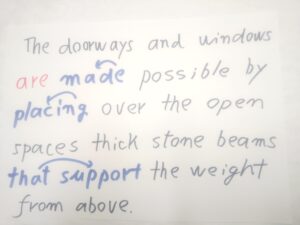 The doorways and windows
are made possible by
placing over the open
spaces thick stone beams
that support the weight
from above.